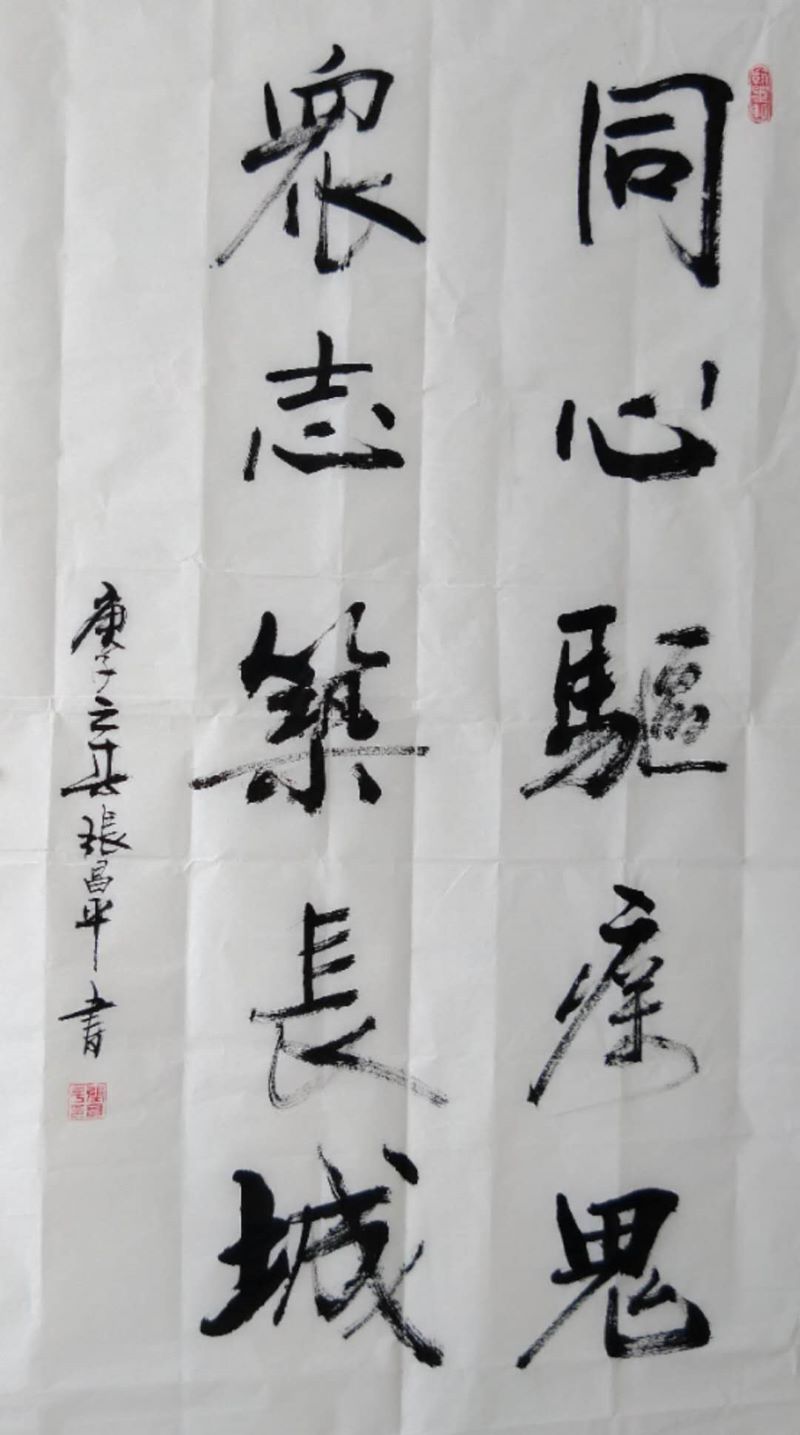 同心驅鬼
眾志築長城
庚子之春張昌平書